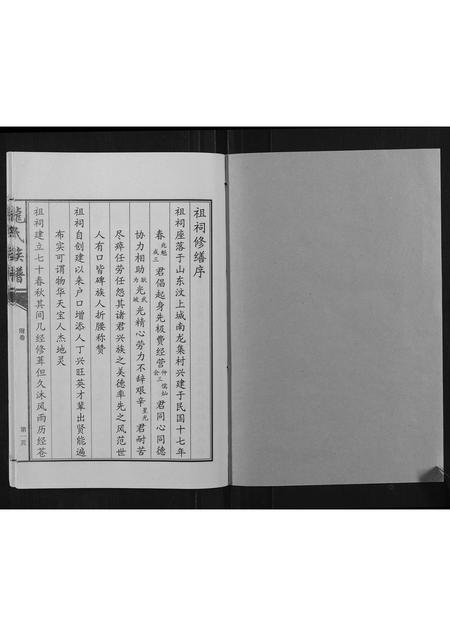 祖祠修缮序
祖祠座落于山东汶上城南龙集村兴建于民国十七年
春兆魁成三君倡起身先极费经营仲三儒灿会君同心同德
协力相助耿武光坡光精心劳力不辞艰辛星光君耐苦
尽瘁任劳任怨其诸君兴族之美德率先之风范世
人有口皆碑族人折腰称赞
祖祠自创建以来户口增添人丁兴旺英才辈出贤能遍
布实可谓物华天宝人杰地灵
祖祠建立七十春秋其间几经修葺但久沐风雨历经苍
龙氏族谱
附卷
第一页